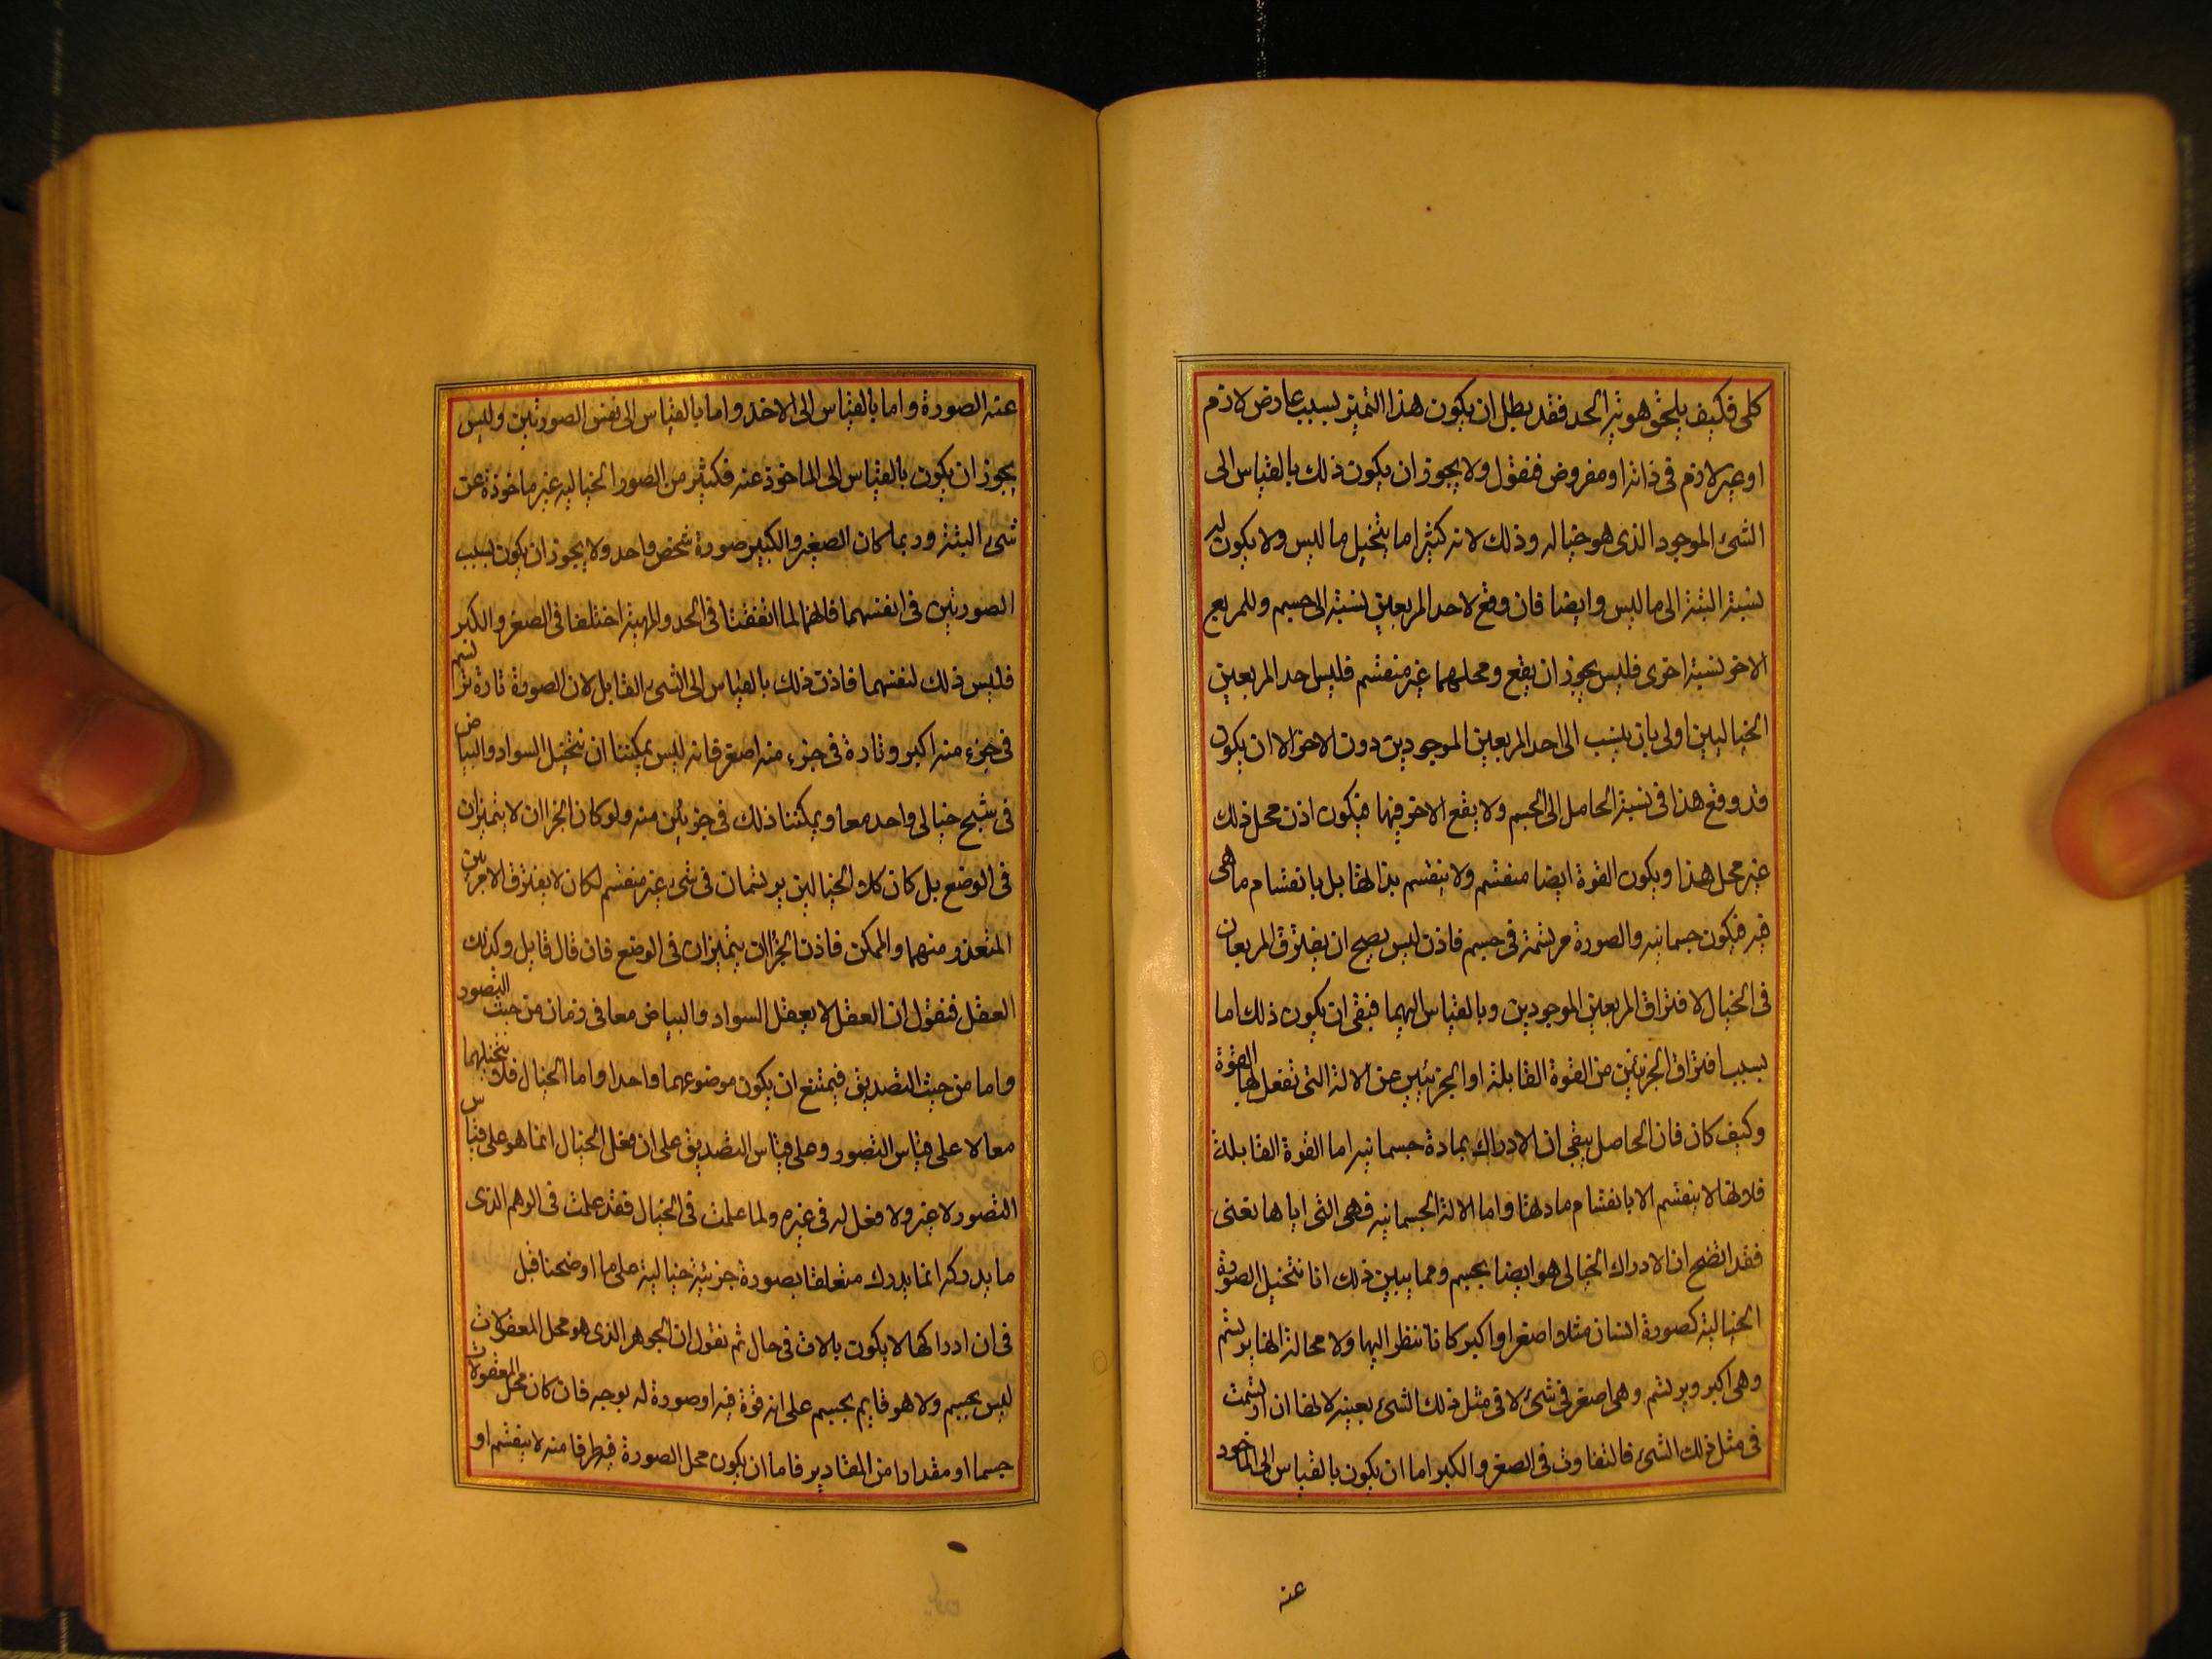 كلى فكيف يلحق هويته الحد فقد بطل ان يكون هذا التميز بسبب عارض لازم
او غير لازم فى ذاته او مفروض فنقول ولا يجوز ان يكون ذلك بالقياس الى
الشئ الموجود الذى هو خياله وذلك لانه كثيرا ما يتخيل ما ليس ولا يكون له
نسبة البتة الى ما ليس وايضا فان وقع لاحد المربعين نسبة الى جسم وللمربع
الاخر نسبة اخرى فليس يجوز ان يقع ومحلهما غير منقسم فليس احد المربعين
الخياليين اولى بان ينسب الى احد المربعين الموجودين دون الاخر الا ان يكون
قد وقع هذا فى نسبة الحامل الى الجسم ولا يقع الاخر فيها فيكون اذن محل ذلك
غير محل هذا ويكون القوة ايضا منقسم ولا ينقسم بذاتها بل بانقسام ما هى
فيه فيكون جسمانيه والصورة مرتسمة فى جسم فاذن ليس يصح ان يفترق المربعان
فى الخيال لافتراق المربعين الموجودين وبالقياس اليهما فبقى ان يكون ذلك اما
بسبب افتراق الجزئين من القوة القابلة او الجزئيين عن الالة التى تفعل لها القوة
وكيف كان فان الحاصل يبقى ان الادراك بمادة جسمانيه اما القوة القابلة
فلانها لا ينقسم الا بانقسام مادتها واما الالة الجسمانيه فهى التى اياها نعنى
فقد اتضح ان الادراك الخيالى هو ايضا بجسم ومما يبين ذلك انا نتخيل الصورة
الخيالية كصورة انسان مثلا اصغر او اكبر كانا ننظر اليها ولا محالة انها يرتسم
وهى اكبر ويرتسم وهى اصغر فى شئ لا فى مثل ذلك الشئ بعينه لانها ان ارتسمت
فى مثل ذلك الشئ فالتفاوت فى الصغر والكبر اما ان يكون بالقياس الى الماخوذ
عنه
عنه الصورة واما بالقياس الى الاخذ واما بالقياس الى نفس الصورتين وليس
يجوز ان يكون بالقياس الى الماخوذ عنه فكثير من الصور الخياليه غير ماخوذة عن
شئ البتة وربما كان الصغير والكبير صورة شخص واحد ولا يجوز ان يكون بسبب
الصورتين فى انفسهما فانهما لما اتفقتا فى الحد والمهية اختلفا فى الصغر والكبر
فليس ذلك لنفسهما فاذن ذلك بالقياس الى الشئ القابل لان الصورة تارة ترتسم
فى جزء منه اكبر وتارة فى جزء منه اصغر فانه ليس يمكننا ان نتخيل السواد والبياض
فى شبح خيالى واحد معا ويمكننا ذلك فى جزئين منه ولو كان الجزاان لا يتميزان
فى الوضع بل كان كلا الخيالين يرتسمان فى شئ غير منقسم لكان لا يفترق الامر بين
المتعذر منهما والممكن فاذن الجزاان يتميزان فى الوضع فان قال قايل وكذلك
العقل فنقول ان العقل لا يعقل السواد والبياض معا فى زمان من حيث التصور
واما من حيث التصديق فيمتنع ان يكون موضوعهما واحدا واما الخيال فلا يتخيلهما
معا لا على قياس التصور وعلى قياس التصديق على ان فعل الخيال انما هو على قياس
التصور لا غير ولا فعل له فى غيره ولما علمت فى الخيال فقد علمت فى الوهم الذى
ما يدركه انما يدرك متعلقا بصورة جزئية خيالية على ما اوضحنا قبل
فى ان ادراكها لا يكون بالات فى حال ثم نقول ان الجوهر الذى هو محل المعقولات
ليس بجسم ولا هو قايم بجسم على انه قوة فيه او صورة له بوجه فان كان محل المعقولات
جسما او مقدارا من المقادير فاما ان يكون محل الصورة فيه طرفا منه لا ينقسم او